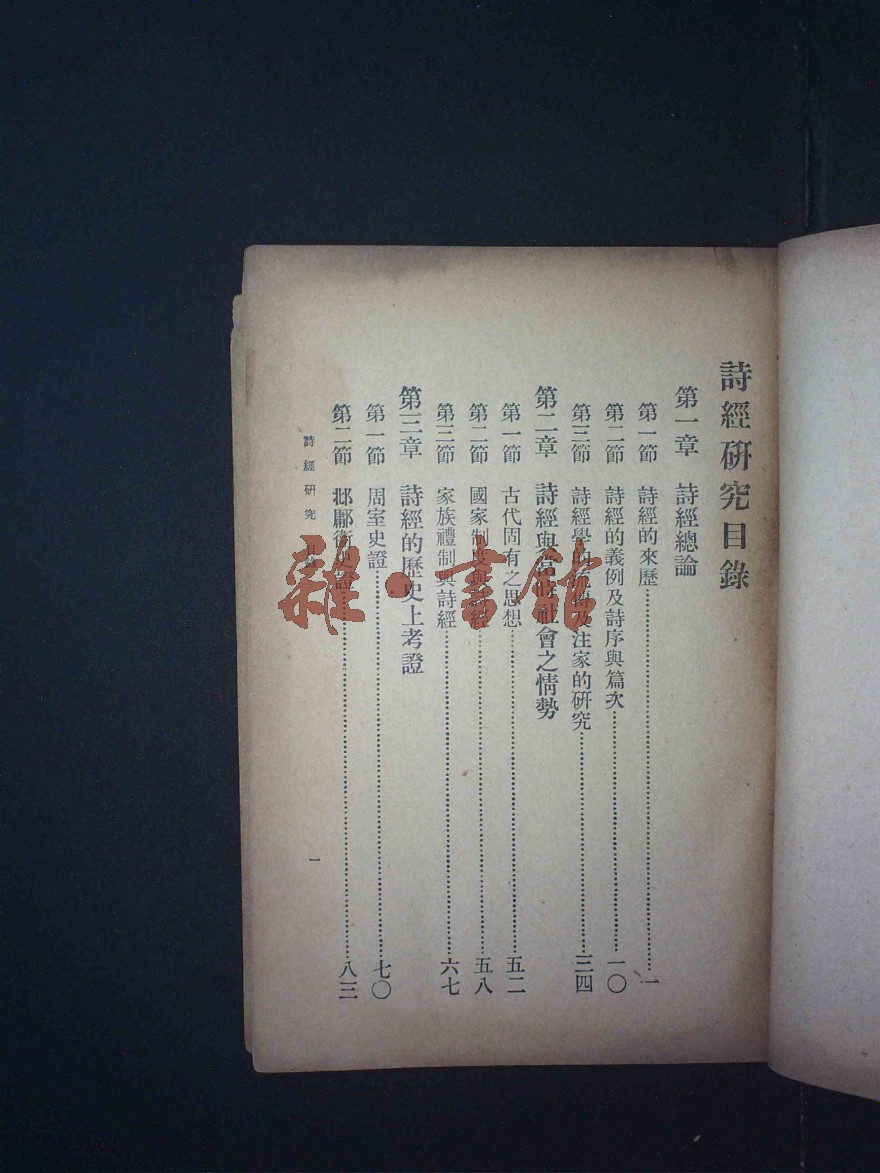 詩經研究目錄
第一章 詩經總論
第一節 詩經的來歷……一
第二節 詩經的義例及詩序與篇次……一〇
第三節 詩經學的流傳及注家的研究……三四
第二章 詩經與當時社會之情勢
第一節 古代固有之思想……五二
第二節 國家制度與詩經……五八
第三節 家族禮制與詩經……六七
第三章 詩經的歷史上考證
第一節 周室史證……七〇
第二節 邶鄘衛史證……八三
詩經研究 目錄
一
雜·書館